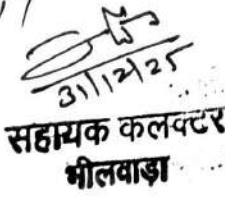 31/12/25
सहायक कलक्टर
भीलवाड़ा